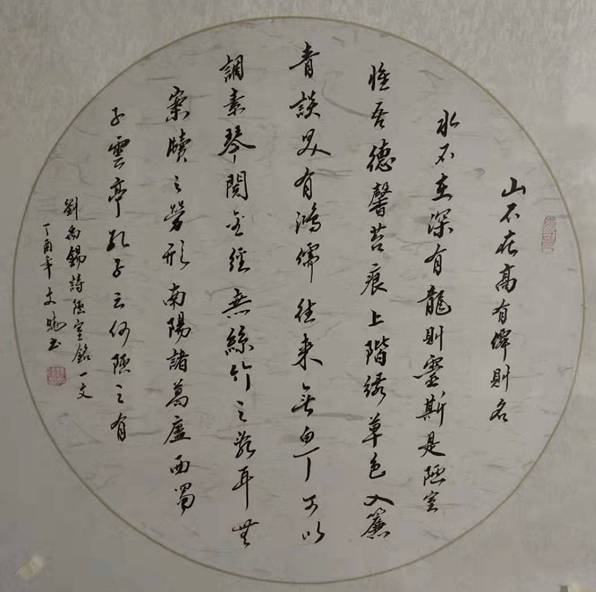 山不在高有僊則名
水不在深有龍則靈斯是陋室
惟吾德馨苔痕上階綠草色入簾
青談笑有鴻儒往來無白丁可以
調素琴閱金經無絲竹之亂耳無
案牘之勞形南陽諸葛廬西蜀
子雲亭孔子云何陋之有
劉禹錫詩陋室銘一文
丁酉年文书